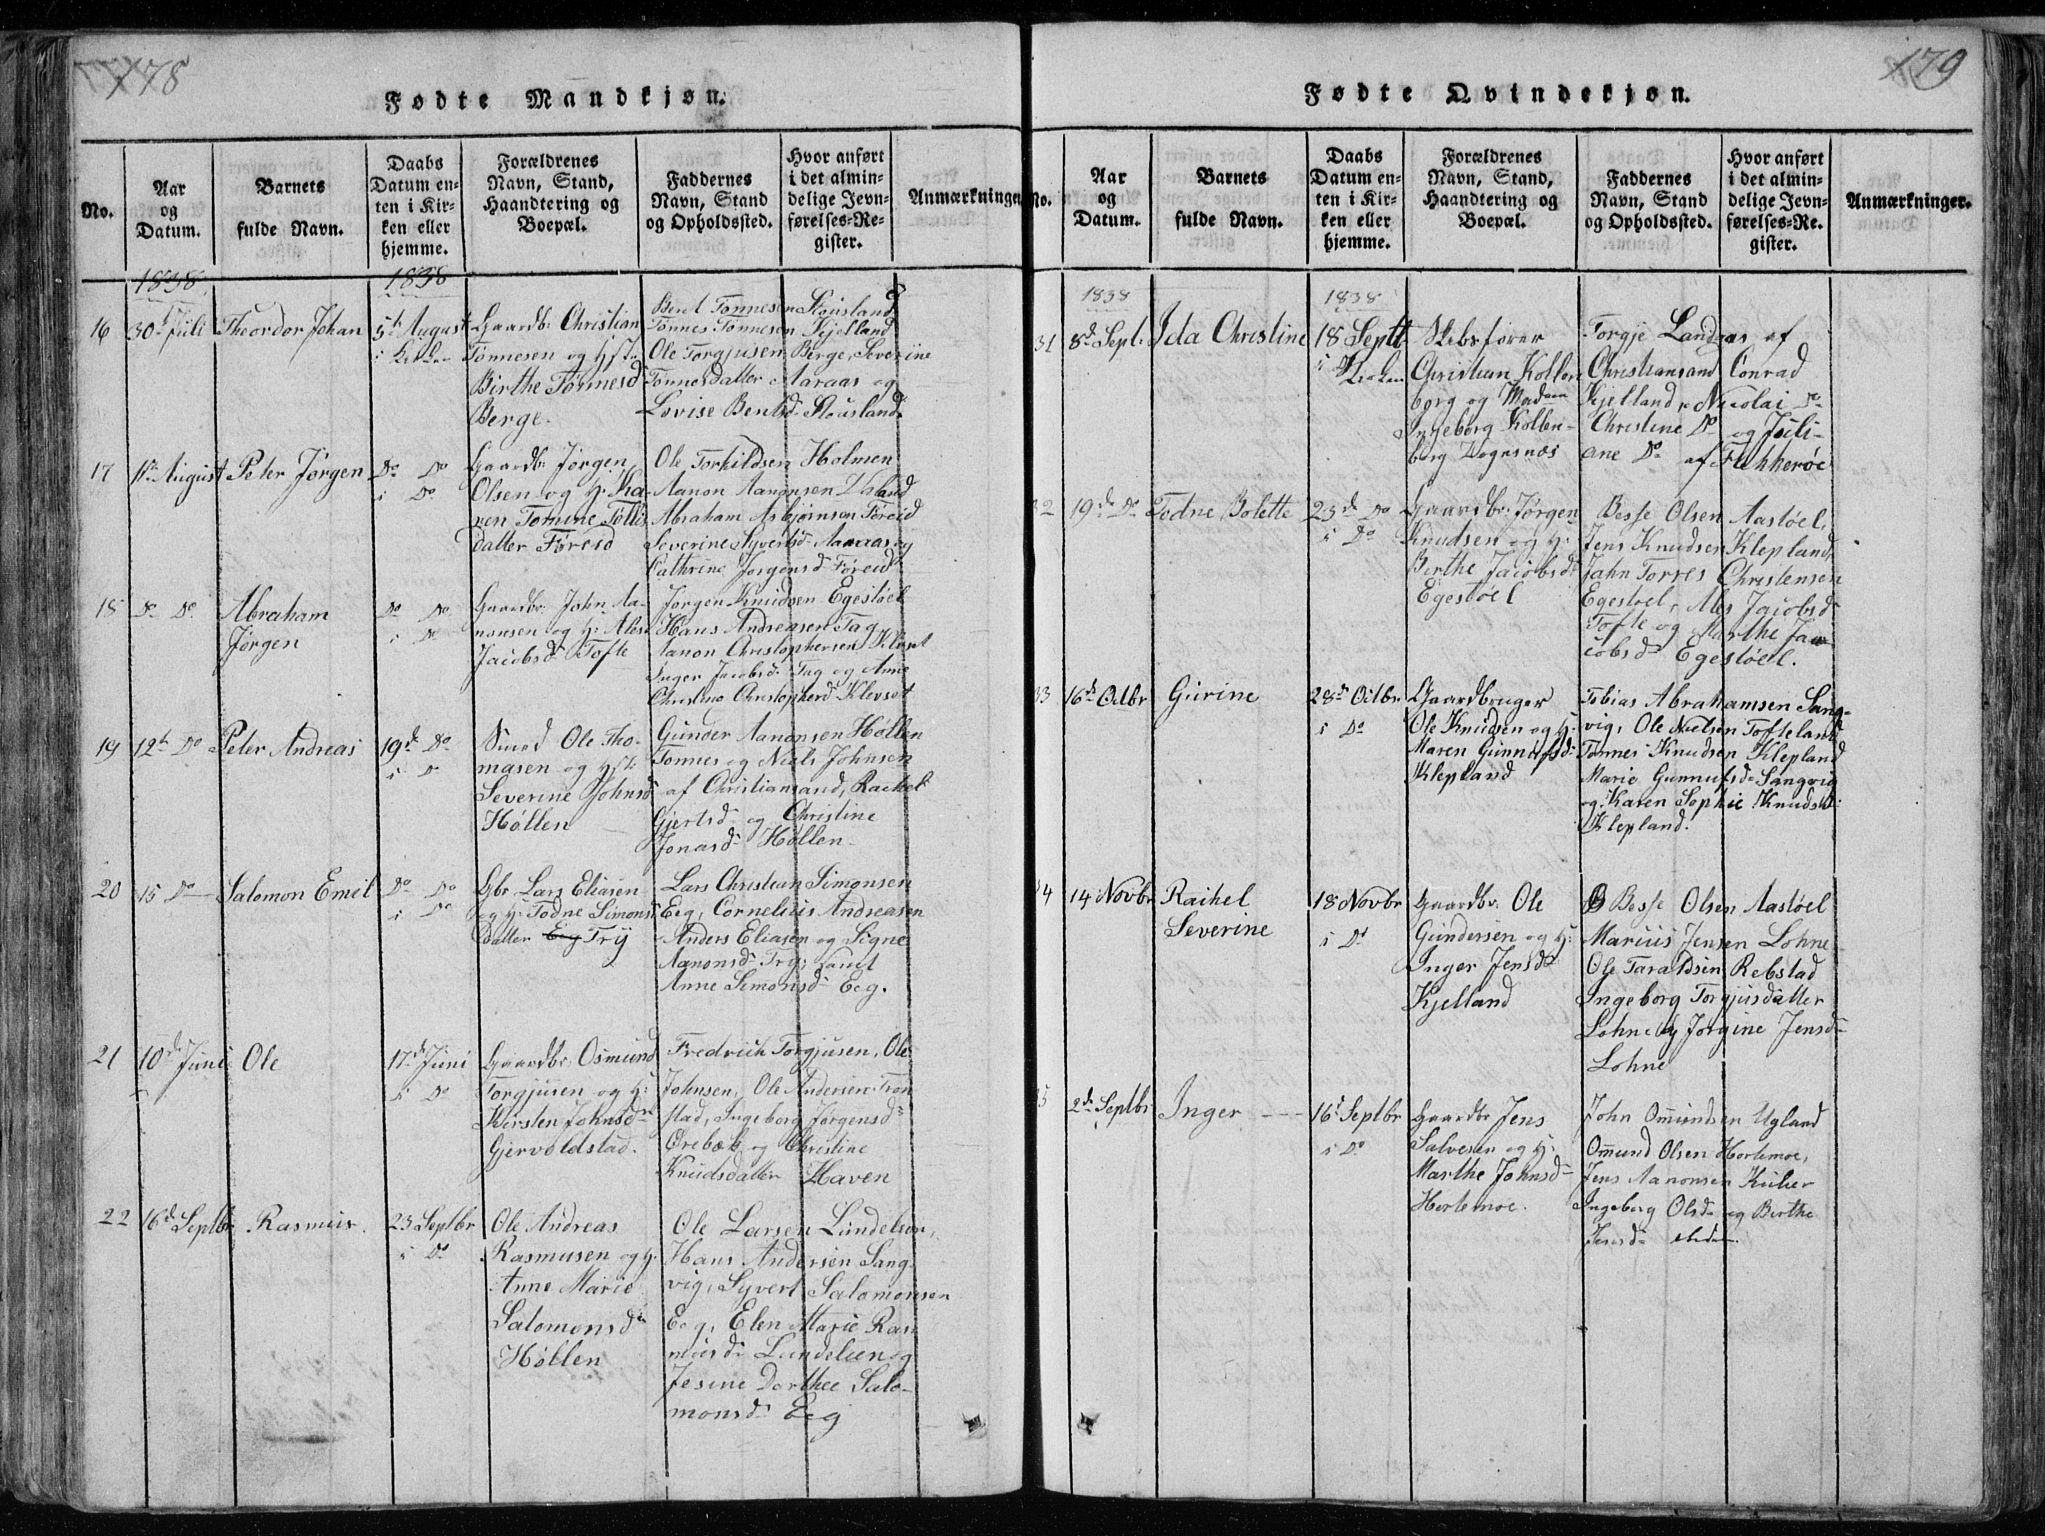 178
Fødte Mandkjøn.
No.
Aar
og
Datum.
Barnets
fulde Navn.
Daabs
Datum en-
ten i Kir-
ken eller
hjemme.
Forældrenes
Navn, Stand,
Haandtering og
Boepæl.
Faddernes
Navn, Stand
og Opholdssted.
Hvor anført
i det almin-
delige Jevn-
førelses-Re-
gister.
Anmærkninger
1838
1838
16
30te Juli
Theordor Johan
5te August
i Kirken
Gaardbr. Christian
Tønnesen og Hst.
Birthe Tønnesd
Berge.
Berent Tønnesen Stousland
Tønnes Tønnesen Kjelland
Ole Torgjusen Berge, Severine
Tønnesdatter Aaraas og
Lovise Bentsd. Stousland
17
1te August
Peter Jørgen
Do Do
i Do
Gaardb. Jørgen
Olsen og H. Ka-
ren Tomine Tollis
datter Føreid
Ole Torkildsen Holmen
Aanon Aanonsen
Abraham Asbjørnsen Føreid
Severine Syvertsd. Aaraas og
Cathrine Jørgensd Føreid
18
Do Do
Abraham
Jørgen
Do Do
i Do
Gaardbr. John Aa-
nonsen og H. Ales
Jacobsd Tofte
Jørgen Knudsen Egestøel
Hans Andreasen Tag
Aanon Christophersen Kleset
Inger Jacobsd. Tag og Anne
Christine Christopherd Klevset
19
12te Do
Peter Andreas
19de Do
i Do
Smed Ole Tho-
masen og Hst.
Severine Johnsd
Høllen
Gunder Aanonsen Høllen
Tønnes og Niels Johnsen
af Christiansand, Rachel
Gjertsd. og Christine
Jonasd. Høllen
20
15 Do
Salomon Emil
Do Do
i Do
Gbr Lars Eliasen
og H. Todne Simons
datter Eeg Try
Lars Christian Simonsen
Eeg, Cornelius Andreasen
Anders Eliasen og Signe
Aanonsd. Try, samt
Anne Simonsd. Eeg.
21
10de Juni
Ole
17de Juni
i Do
Gaardbr. Osmund
Torgjusen og H.
Kirsten Johnsd
Gjervoldstad.
Fredrich Torgjusen, Ole
Johnsen, Ole Andersen Tron
stad, Ingeborg Jørgensd
Ørebæk og Christine
Knudsdatter Haven
22
16de Septbr
Rasmus
23 Septbr
i Do
Ole Andreas
Rasmusen og H.
Anne Marie
Salomonsd
Høllen
Ole Larsen Lundelien,
Hans Andersen Sang
vig, Syvert Salomonsen
Eeg, Elen Marie Ras
musd. Lundelien og
Jesine Dorthee Salo-
monsd. Eeg
179
Fødte Qvindekjøn.
No.
Aar
og
Datum.
Barnets
fulde Navn.
Daabs
Datum en-
ten i Kir-
ken eller
hjemme.
Forældrenes
Navn, Stand,
Haandtering og
Boepæl.
Faddernes
Navn, Stand
og Opholdssted.
Hvor anført
i det almin-
delige Jevn-
førelses-Re.
gister.
Anmærkninger.
1838
1838
31
8de Sept.
Ida Christine
18 Septt
i Kirken
Skibsfører
Christian Kollen
borg og Madam
Ingeborg Kollen-
borg Dognsnæs
Torgje Landaas af
Christiansand Conrad
Kjelland, Nicolai Do
Christine Do og Juli-
ane Do af Flekkerøe
32
19de Do
Todne Bolette
23de Do
i Do
Gaardbr. Jørgen
Knudsen og H.
Berthe Jacobsd
Egestøel
Besse Olsen Aastøel,
Jens Knudsen Klepland,
Jahn Torres Christensen
Egestøel, Ales Jacobsd
Tofte og Marthe Ja-
cobsd. Egestøel.
33
16de Octbr
Gurine
28de Octbr
i Do
Gaardbruger
Ole Knudsen og H.
Maren Gunnufsd.
Klepland
Tobias Abrahamsen Sang-
vig, Ole Nielsen Tofteland
Tønnes Knudsen Klepland
Marie Gunnufsd. Sangvig
og Karen Sophie Knudsd.
Klepland.
34
14 Novbr
Rachel
Severine
18 Novbr
i Do
Gaardbr. Ole
Gundersen og H.
Inger Jensd
Kjelland
Besse Olsen Aastøel
Marius Jensen Lohne
Ole Taraldsen Rebstad
Ingeborg Torgjusdatter
Lohne og Jørgine Jensd.
Lohne
35
2de Septbr
Inger
16de Septbr
i Do
Gaardbr. Jens
Salvesen og H.
Marthe Johnsd.
Hortemoe.
John Omundsen Ugland
Omund Olsen Hortemoe,
Jens Aanonsen
Ingeborg Olsd. og Berthe
Jensd. ibidem.